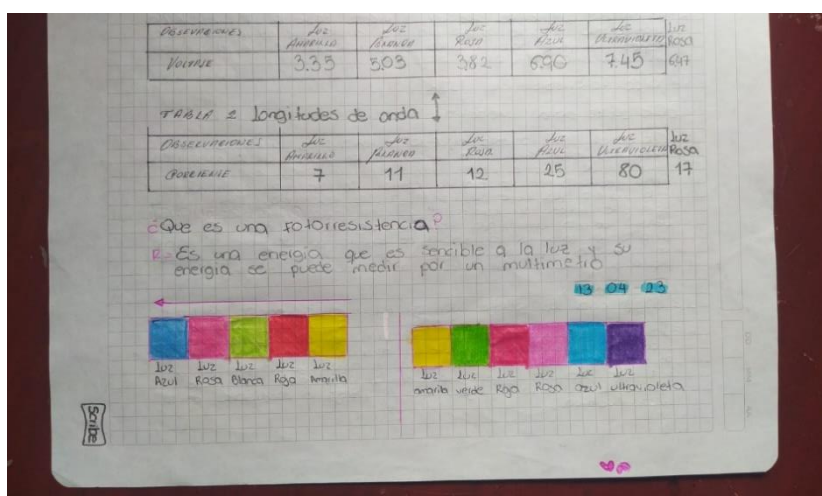 OBSERVACIONES Luz Amarilla Luz Blanca Luz Roja Luz Azul Luz Ultravioleta Luz Rosa
VOLTAJE 3.35 5.03 3.82 6.90 7.45 6.97
TABLA 2 Longitudes de onda
OBSERVACIONES Luz Amarilla Luz Blanca Luz Roja Luz Azul Luz Ultravioleta Luz Rosa
CORRIENTE 7 11 12 25 80 17
¿Que es una fotorresistencia?
R= Es una energia que es sencible a la luz y su
energia se puede medir por un multimetro
13 04 23
Luz Azul Luz Rosa Luz Blanca Luz Roja Luz Amarilla
Luz amarilla Luz verde Luz Roja Luz Rosa Luz azul Luz ultravioleta
Scribe